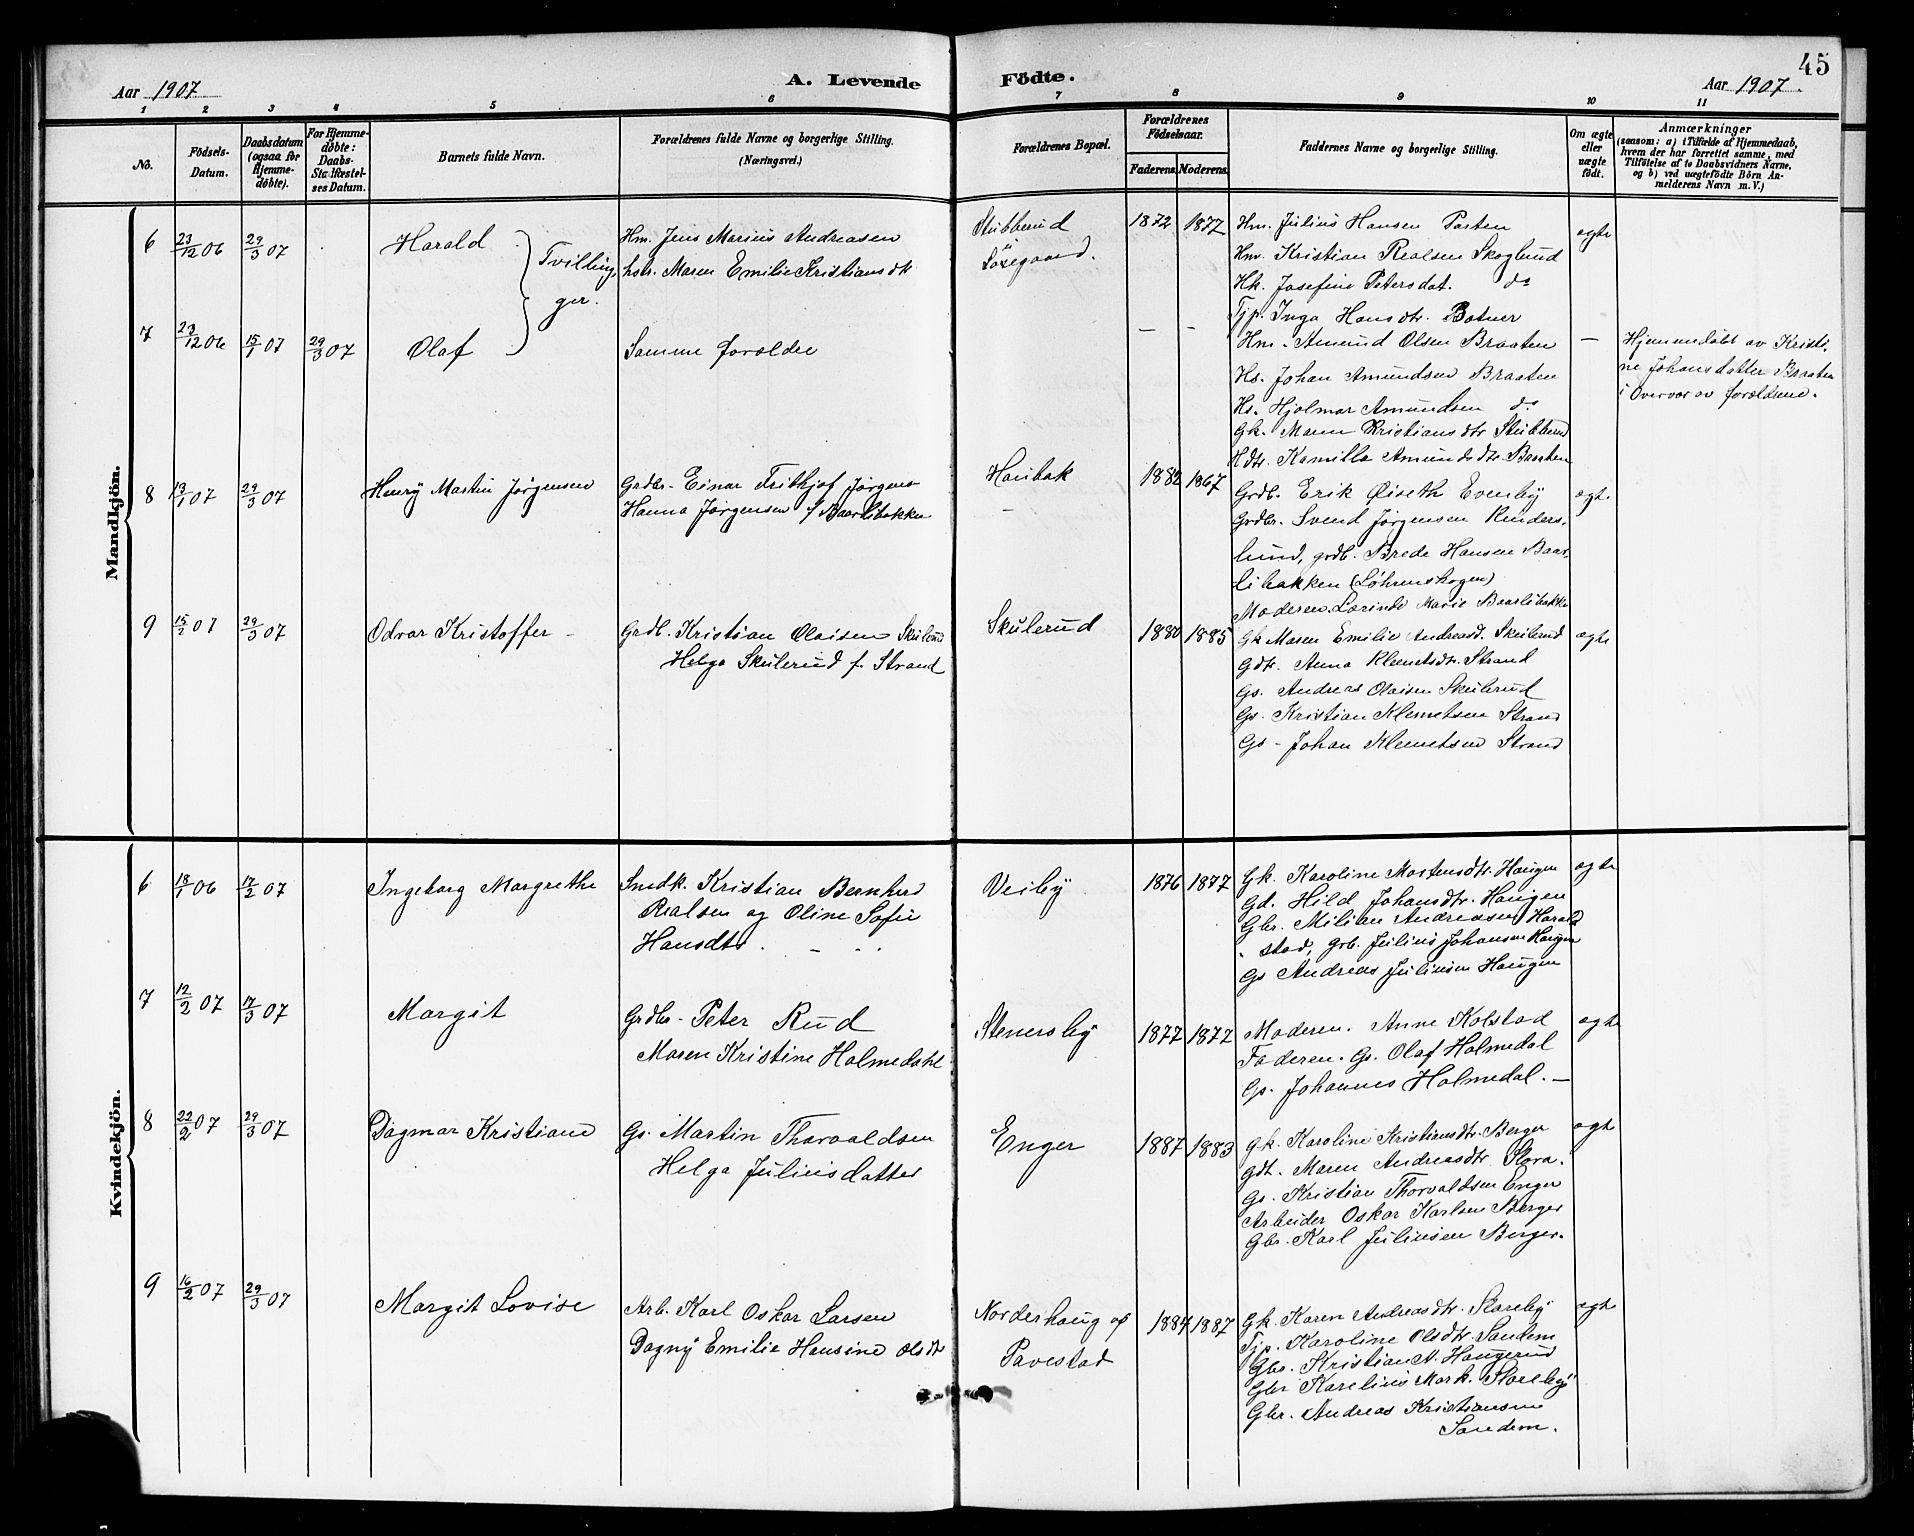 45
Aar 1907
A. Levende Födte.
Aar 1907.
1 2 3 4 5 6 7 8 9 10 11
Nö.
Födsels-
Datum.
Daabsdatum
(ogsaa for
Hjemme-
döbte).
For Hjemme-
döbte:
Daabs-
Stadfæstel-
ses Datum.
Barnets fulde Navn.
Forældrenes fulde Navne og borgerlige Stilling.
(Næringsvei.)
Forældrenes Bopæl.
Forældrenes
Födselsaar.
Faderens. Moderens.
Faddernes Navne og borgerlige Stilling.
Om ægte
eller
uægte
födt.
Anmærkninger
(saasom: a) i Tilfælde af Hjemmedaab,
hvem der har forrettet samme, med
Tilföielse af to Daabsvidners Navne,
og b) ved uægtefödte Börn An-
melderens Navn m. V.)
Mandkjön.
6 23/12 06 29/3 07
Harald
Tvillin-
ger.
Hm. Jens Marius Andreasen
hstr. Maren Emilie Kristiansdtr
Stubberud
Søsegaard.
1872 1877
Hm. Julius Hansen
Hm. Kristian Realsen Skoglund
Hk. Josefine Petersdat. do
Tjp. Inga Hansdtr. Botner
ægte
7 23/12 06 15/1 07 29/3 07
Olaf
Samme forældre
— —
Hm. Amund Olsen Braaten
Hs. Johan Amundsen Braaten
Hs. Hjalmar Amundsen do
Gk. Maren Kristiansdtr Stubberud
Hdtr. Kamilla Amundsdtr. Braaten
—
Hjemmedøbt av Kristi-
ne Johansdatter Braaten
i Overvær av forældrene.
8 13/1 07 29/3 07
Henry Martin Jørgensen
Grdbr. Einar Frithjof Jørgens-
Hanna Jørgensen f. Baarlibakken
1882 1867
Grdb. Erik Øiseth Evenby
Grdbr. Svend Jørgensen Kinders-
lund, grdb. Brede Hansen Baar-
libakken (Løhrenskogen)
Moderen. Lorinde Marie Baarlibakke
ægte
9 15/2 07 29/3 07
Odvar Kristoffer
Grdb. Kristian Olaisen Skulerud
Helga Skulerud f. Strand
Skulerud
1880 1885
Gk Maren Emilie Andreasd. Skulerud
Gdtr. Anna Klemetsdtr. Strand
Gs. Andreas Olaisen Skulerud
Gs. Kristian Klemetsen Strand
Gs - Johan Klemetsen Strand
ægte
Kvindekjön.
6 18/1 06 17/2 07
Ingeborg Margrethe
Smdk. Kristian Bernhard
Realsen og Oline Sofie
Hansdtr.
Veiby
1876 1877
Gk. Karoline Mortensdtr. Haugen
Gd. Hild Johansdtr. Haugen
Gbr. Milian Andreasen Harald
stad, grb. Julius Johansen Haugen
Gs Andreas Juliusen Haugen
ægte
7 12/2 07 17/3 07
Margit
Grdbr. Peter Rud
Maren Kristine Holmedahl
Stenersby
1877 1877
Moderen. Anne Kolstad
Faderen. Gs. Olaf Holmedal
Gs. Johannes Holmedal. —
ægte
8 22/2 07 29/3 07
Dagmar Kristiane
Gs. Martin Thorvaldsen
Helga Juliusdatter
Enger
1887 1883
Gk. Karoline Kristiansdtr. Berger
Gdt. Maren Andreasdtr Slora.
Gs. Kristian Thorvaldsen Enger
Arbeider Oskar Karlsen Berger
Gbr. Karl Juliusen Berger.
ægte
9 16/2 07 29/3 07
Margit Lovise
Arb. Karl Oskar Larsen
Dagny Emilie Hansine Olsdtr
Norderhaug og
Pavestad
1884 1887
Gk. Karen Andreasdtr. Skareby
Tjp. Karoline Olsdtr. Sandem
Gbr. Kristian A. Haugerud
Gbr Karelius Mork. Skareby
Gbr. Andreas Kristiansen
Sandem.
ægte